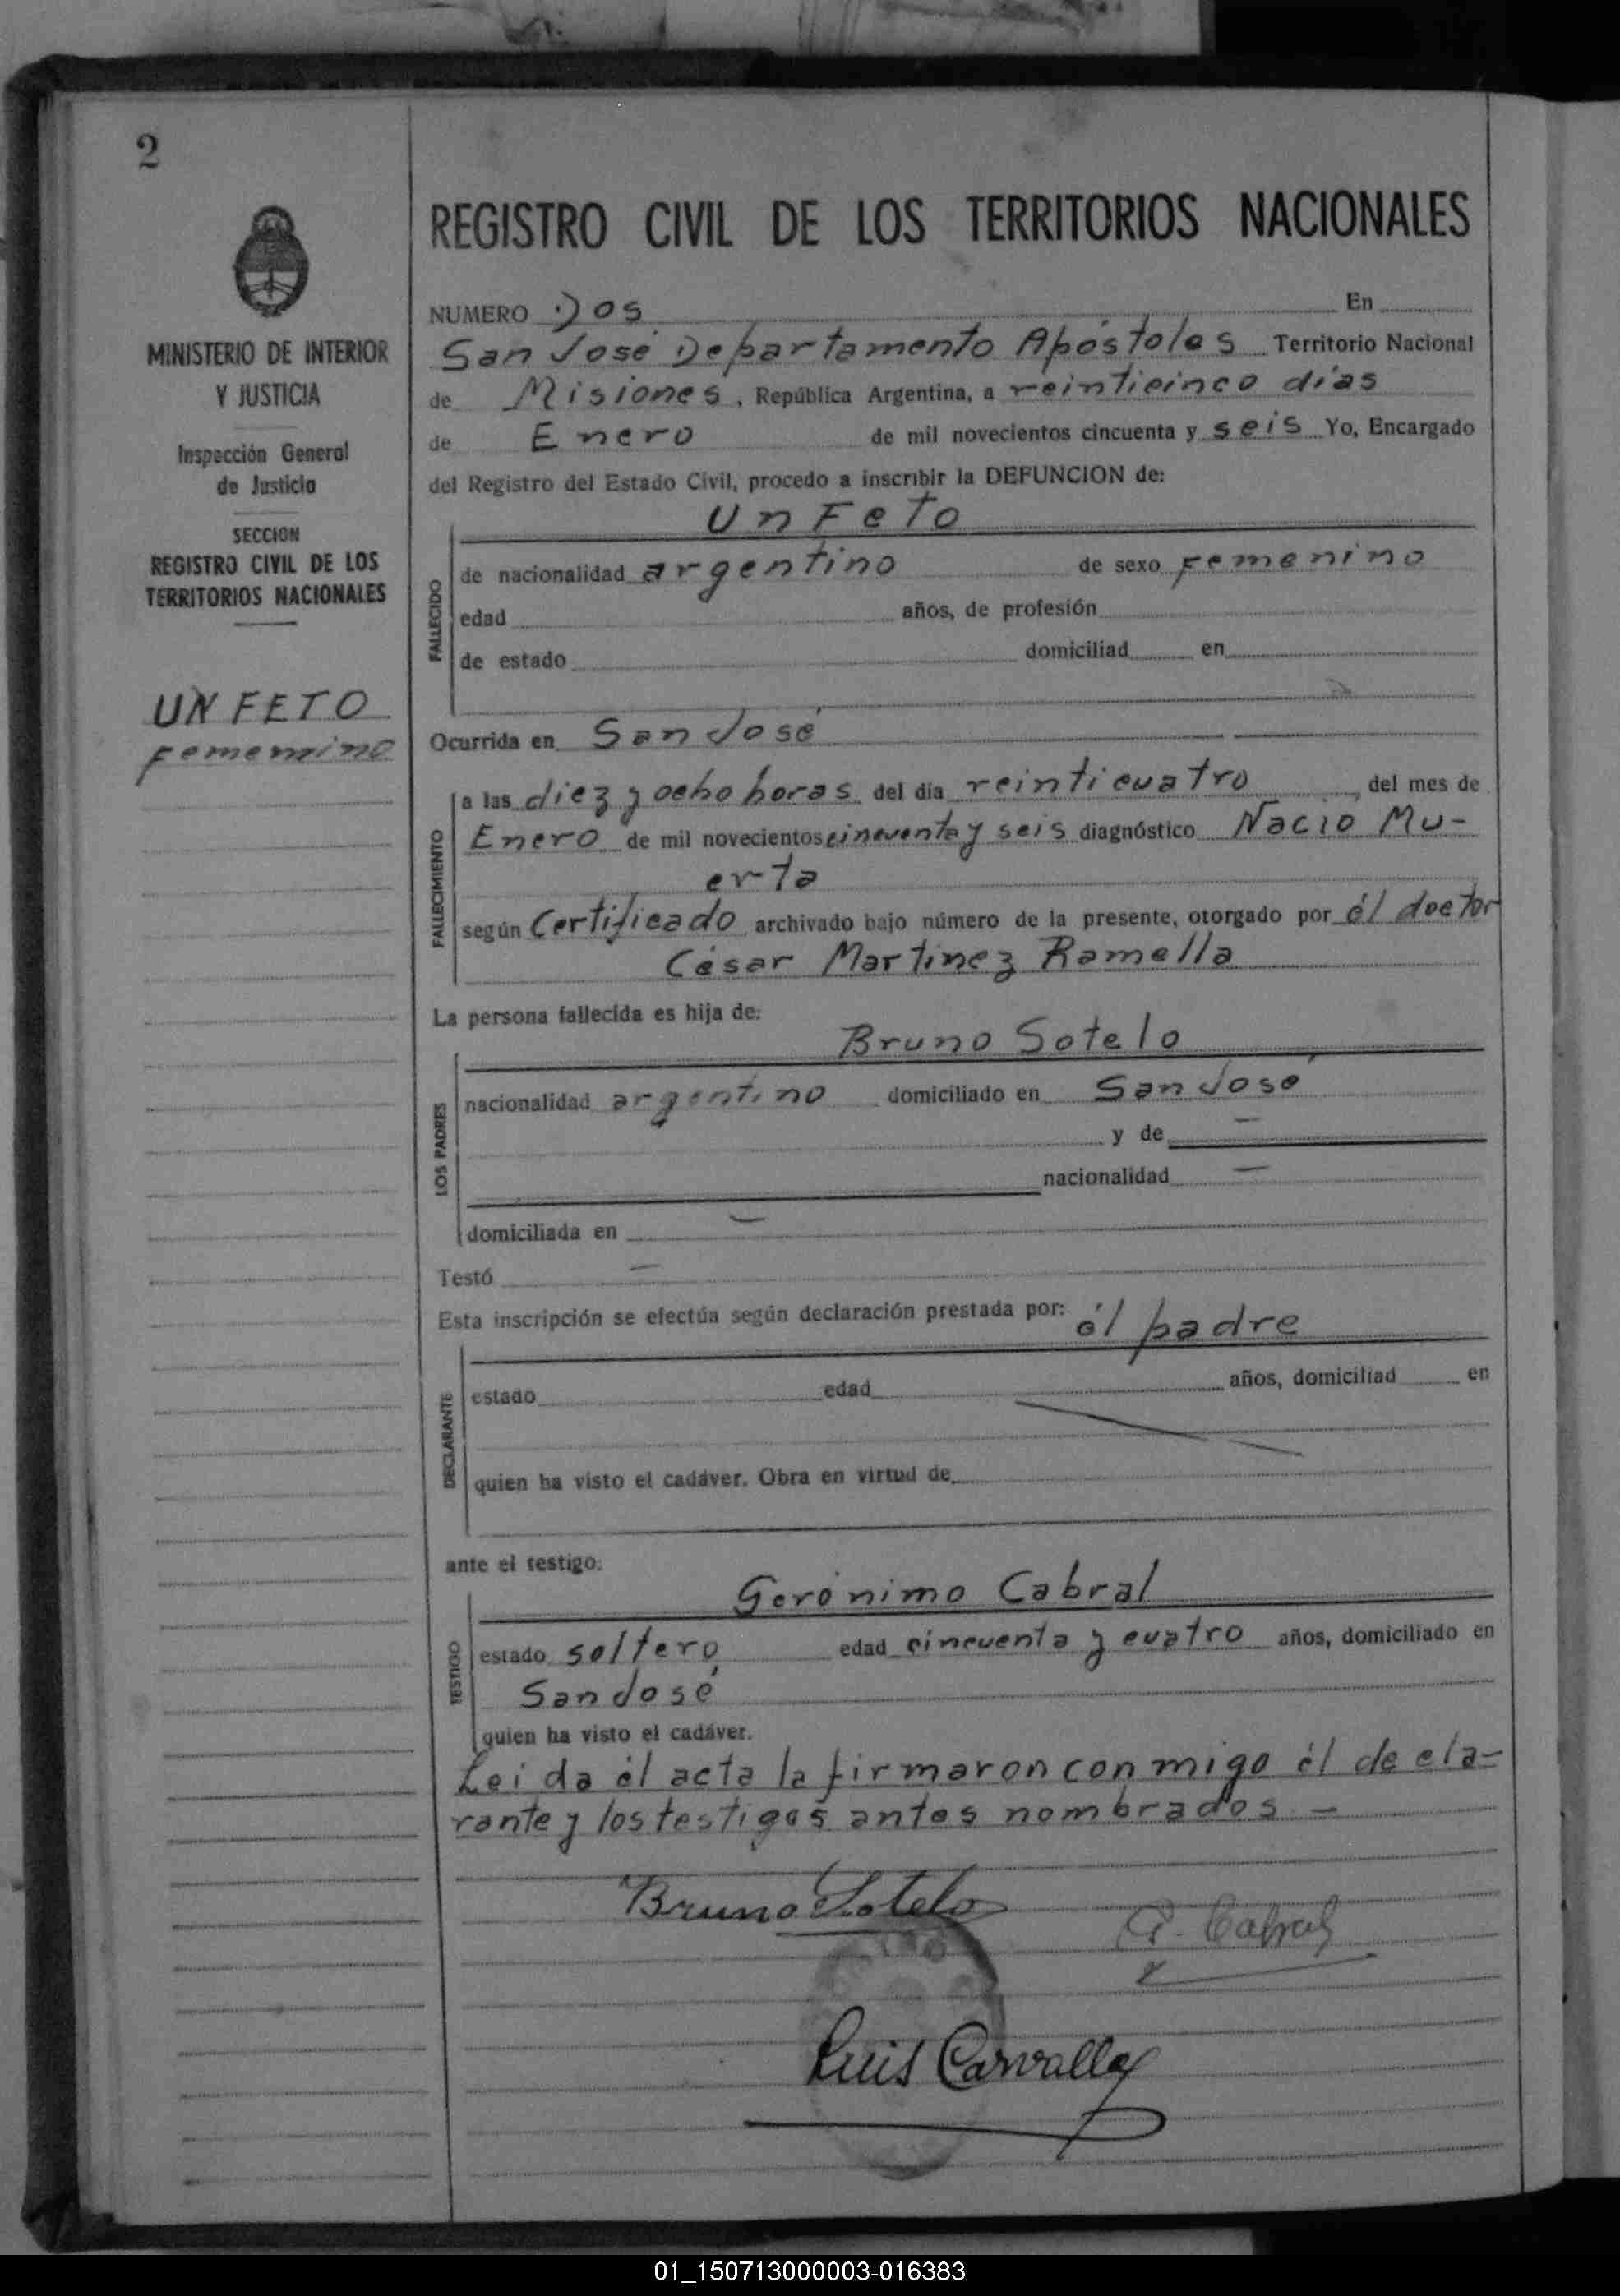 2
MINISTERIO DE INTERIOR
Y JUSTICIA
Inspección General
de Justicia
SECCION
REGISTRO CIVIL DE LOS
TERRITORIOS NACIONALES
UN FETO
Femenino
REGISTRO CIVIL DE LOS TERRITORIOS NACIONALES
NUMERO Dos En
San José Departamento Apóstoles Territorio Nacional
de Misiones, República Argentina, a veinticinco días
de Enero de mil novecientos cincuenta y seis Yo, Encargado
del Registro del Estado Civil, procedo a inscribir la DEFUNCION de:
Un Feto
FALLECIDO
de nacionalidad argentino de sexo Femenino
edad años, de profesión
de estado domiciliad en
Ocurrida en San José
FALLECIMIENTO
a las diez y ocho horas del día veinticuatro, del mes de
Enero de mil novecientos cincuenta y seis diagnóstico Nacio Mu-
erta
según Certificado archivado bajo número de la presente, otorgado por él doctor
César Martinez Ramella
La persona fallecida es hija de:
Bruno Sotelo
LOS PADRES
nacionalidad argentino domiciliado en San José
y de —
nacionalidad —
domiciliada en —
Testó —
Esta inscripción se efectúa según declaración prestada por: él padre
DECLARANTE
estado edad años, domiciliad en
quien ha visto el cadáver. Obra en virtud de
ante el testigo:
Gerónimo Cabral
TESTIGO
estado soltero edad cincuenta y cuatro años, domiciliado en
San José
quien ha visto el cadáver.
Leida él acta la firmaron con migo él decla-
rante y los testigos antes nombrados —
Bruno Sotelo
G. Cabral
Luis Carvallo
01_150713000003-016383